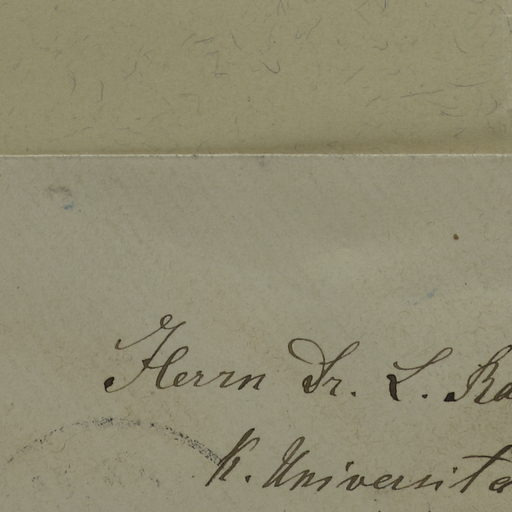 Herrn Dr. L. Ra
K. Universita